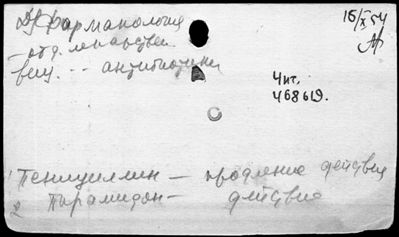 Фармакология
15/X 54
– отд. лекарствен.
вещ. -- антибиотики
Чит.
468619.
1 Пенициллин – продление действия
2 Пирамидон – действие